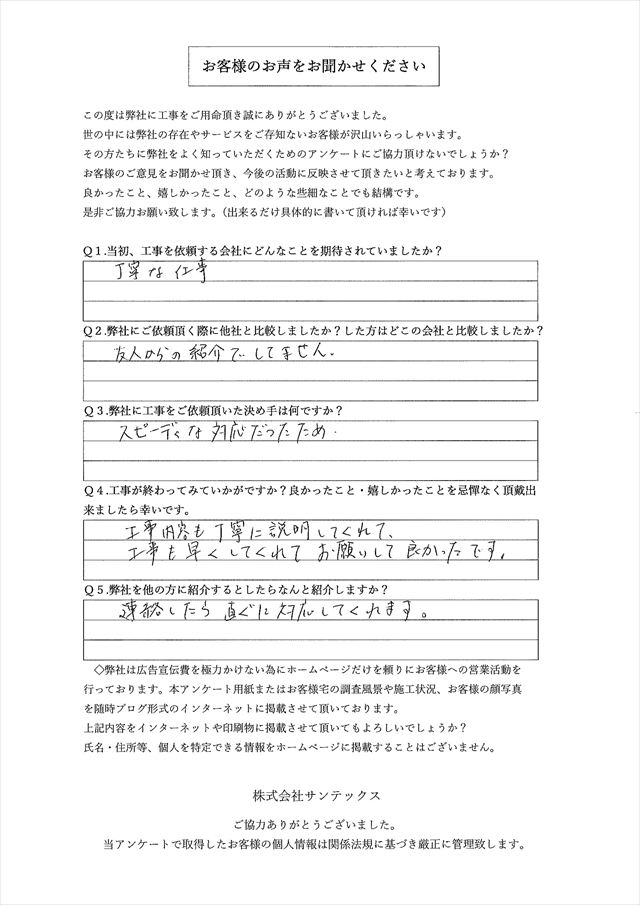 お客様のお声をお聞かせください
この度は弊社に工事をご用命頂き誠にありがとうございました。
世の中には弊社の存在やサービスをご存知ないお客様が沢山いらっしゃいます。
その方たちに弊社をよく知っていただくためのアンケートにご協力頂けないでしょうか？
お客様のご意見をお聞かせ頂き、今後の活動に反映させて頂きたいと考えております。
良かったこと、嬉しかったこと、どのような些細なことでも結構です。
是非ご協力お願い致します。(出来るだけ具体的に書いて頂ければ幸いです)
Q１.当初、工事を依頼する会社にどんなことを期待されていましたか？
丁寧な仕事
Q２.弊社にご依頼頂く際に他社と比較しましたか？した方はどこの会社と比較しましたか？
友人からの紹介でしてません。
Q３.弊社に工事をご依頼頂いた決め手は何ですか？
スピーディな対応だったため.
Q４.工事が終わってみていかがですか？良かったこと・嬉しかったことを忌憚なく頂戴出
来ましたら幸いです。
工事内容も丁寧に説明してくれて、
工事も早くしてくれてお願いして良かったです。
Q５.弊社を他の方に紹介するとしたらなんと紹介しますか？
連絡したら直ぐに対応してくれます。
◇弊社は広告宣伝費を極力かけない為にホームページだけを頼りにお客様への営業活動を
行っております。本アンケート用紙またはお客様宅の調査風景や施工状況、お客様の顔写真
を随時ブログ形式のインターネットに掲載させて頂いております。
上記内容をインターネットや印刷物に掲載させて頂いてもよろしいでしょうか？
氏名・住所等、個人を特定できる情報をホームページに掲載することはございません。
株式会社サンテックス
ご協力ありがとうございました。
当アンケートで取得したお客様の個人情報は関係法規に基づき厳正に管理致します。